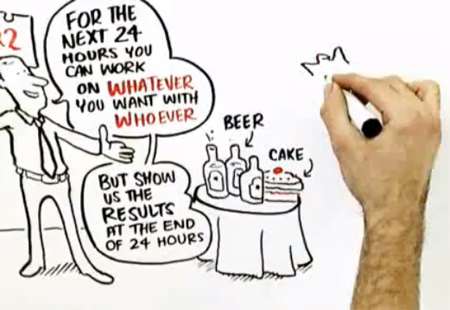 x2
FOR THE
NEXT 24
HOURS YOU
CAN WORK
ON WHATEVER
YOU WANT WITH
WHOEVER
BUT SHOW
US THE
RESULTS
AT THE END
OF 24 HOURS
BEER
CAKE